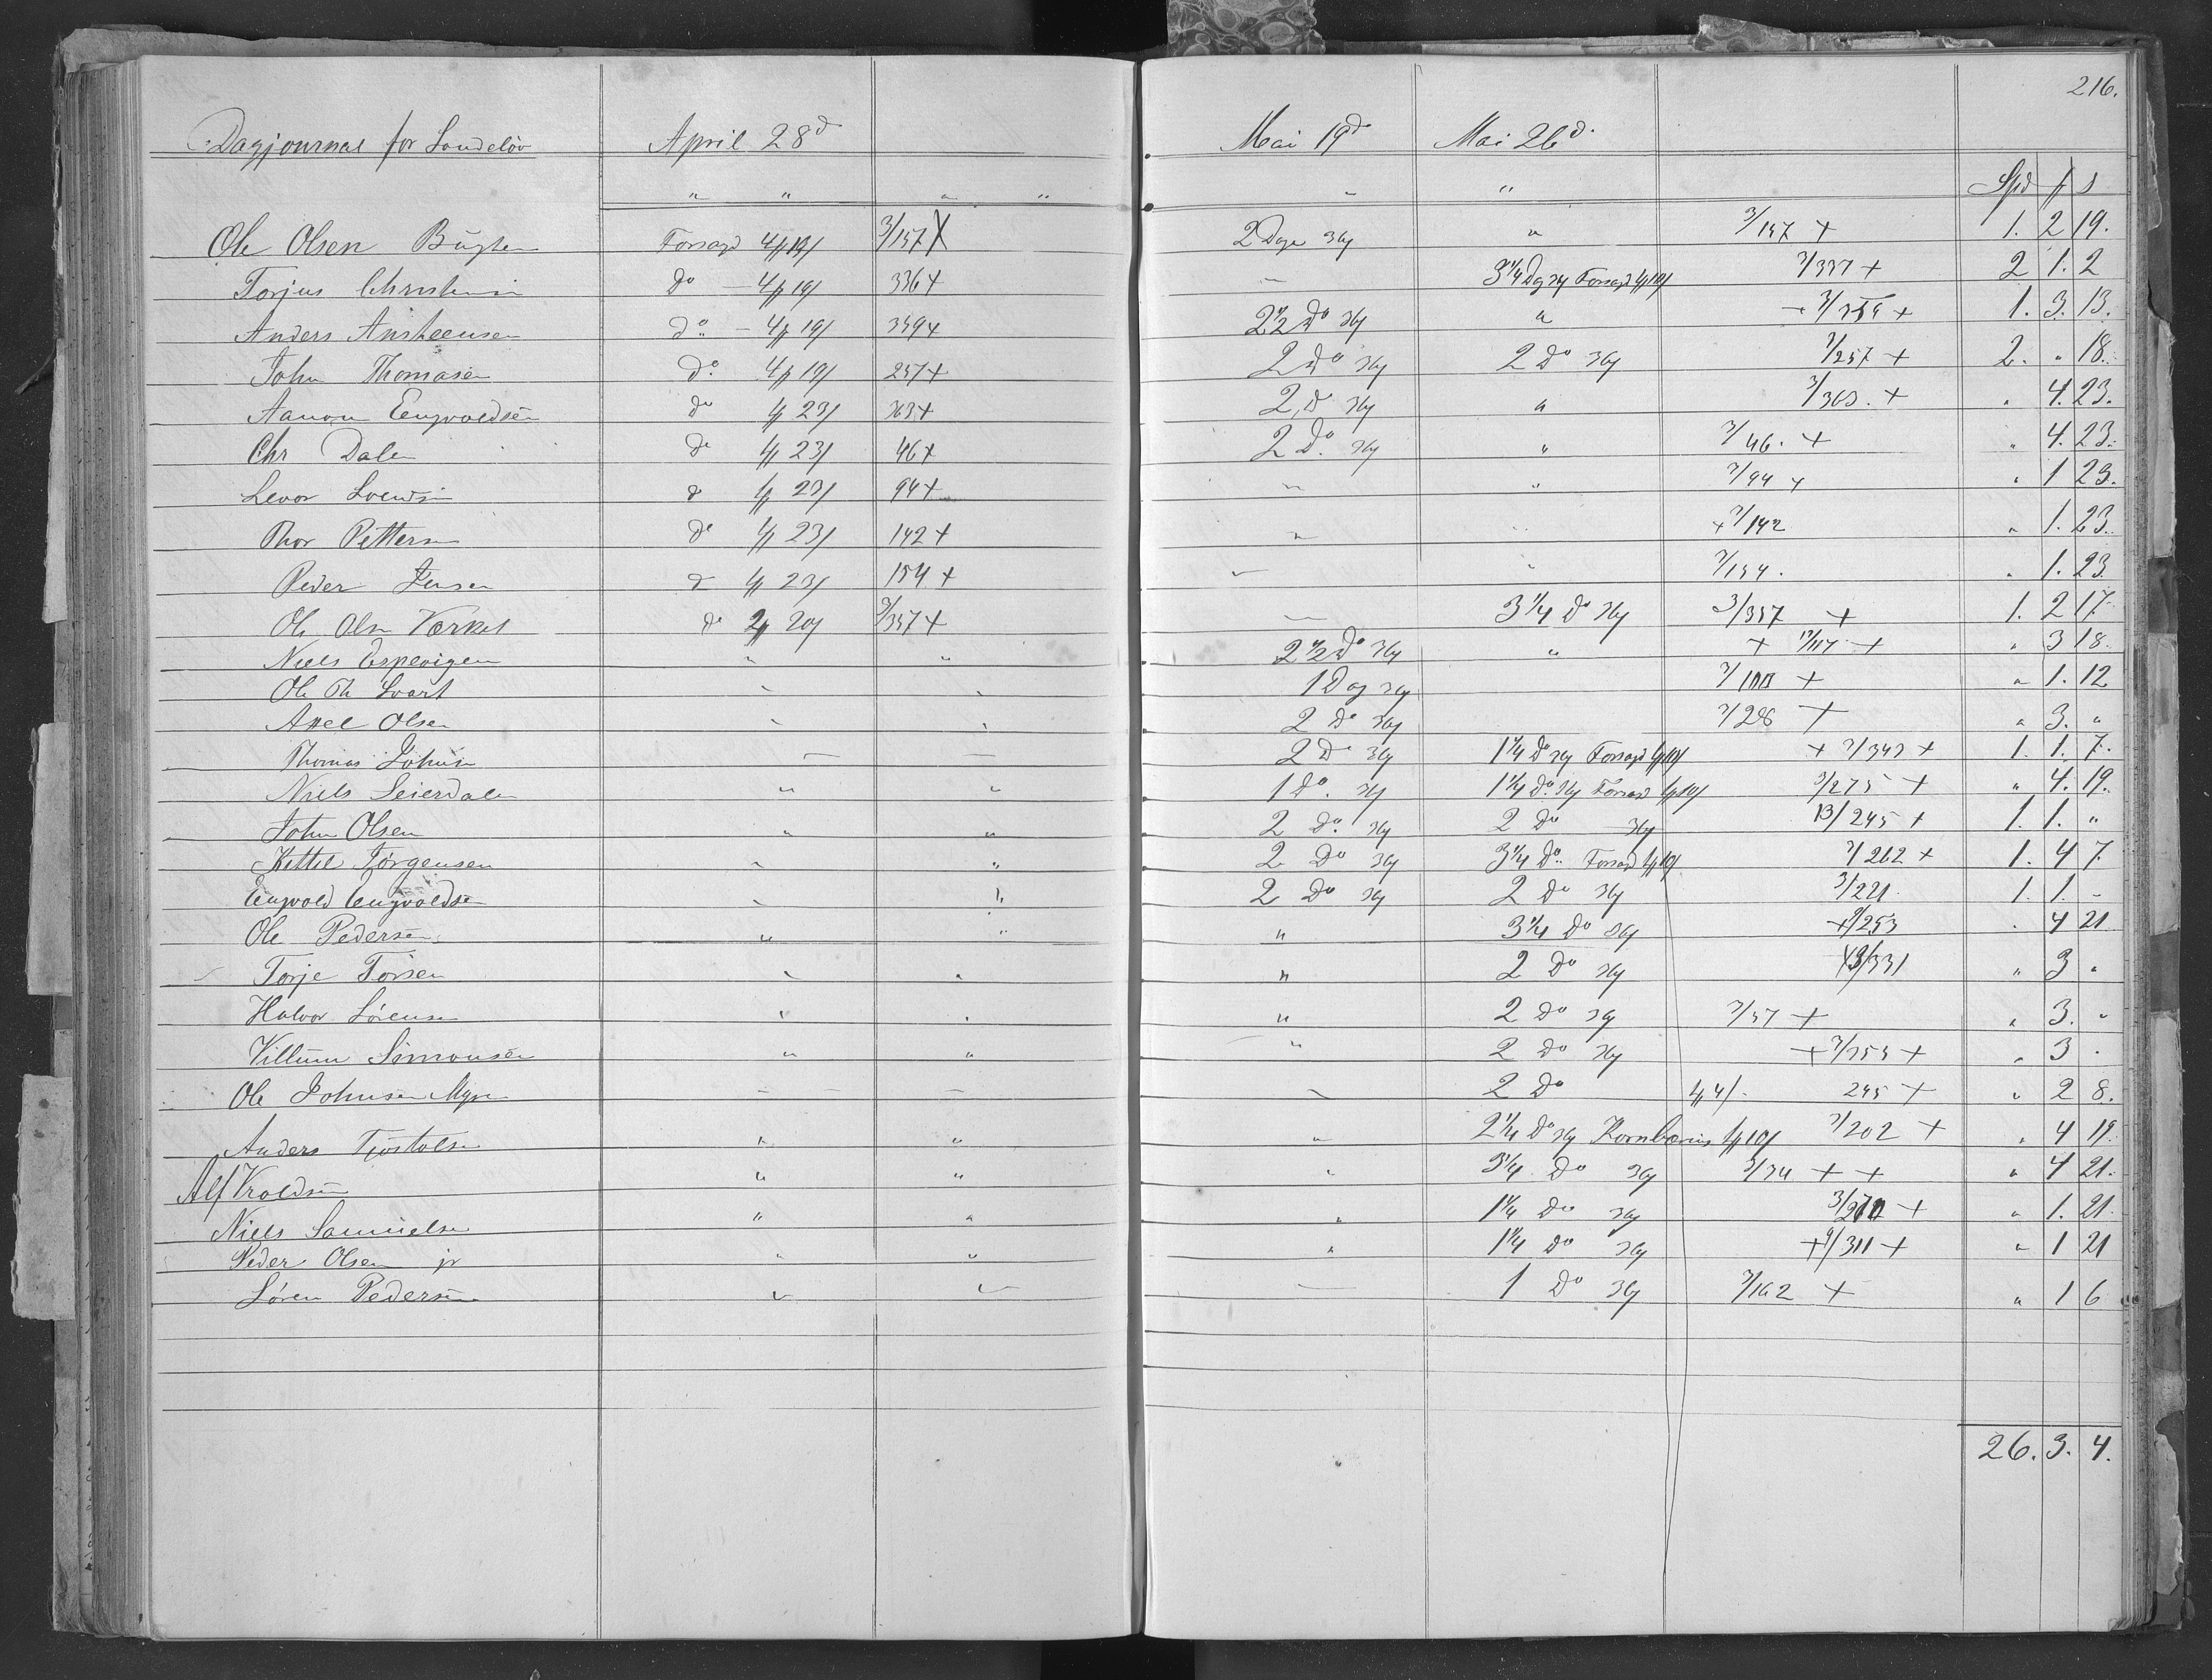 216.
Dagjournal for Sandeløv April 28d Mai 19d Mai 26d.
" " " " " " Spd # s
Ole Olsen Bugten Forsagd 4# 19/ 3/157 X 2 Dage 36/ " 3/157 + 1. 2 19.
Torjus Christensen do - 4# 19/ 336 + - 3 1/4 Dg 36/ Forsagd 1# 10/ 3/337 + 2 1. 2
Anders Ansteensen do - 4# 19/ 359 + 2 1/2 Do 36/ " + 3/359 + 1. 3. 13.
John Thomasen do 4# 19/ 257 + 2 do 36/ 2 do 36/ 3/257 + 2. " 18.
Aanon Engvoldsen do 1# 23/ 363 + 2 do 36/ " 3/363. + " 4. 23.
Chr Dale do 1# 23/ 46 + 2 Do. 36/ " 3/46. + " 4. 23.
Levor do 1# 23/ 94 + " " 3/94 + " 1 23.
Thor Petters do 1# 23/ 142 + " " + 3/142 " 1. 23.
Peder Jensen do 1# 23/ 154 + " " 3/154. " 1. 23
Ole Olsen Værket do 2# 20/ 3/357 + - 3 1/4 do 36/ 3/357 + 1. 2 17.
Niels Espevigen " " 2 1/2 Do 36/ " + 13/117 + " 3 18.
Ole Th Svart " " 1 Dag 36/ + " 1. 12
Axel Olsen " " 2 do 36/ 3/28 + " 3. "
Thomas Johnsen - - 2 Do 36/ 1 1/4 do 36/ Forsagd 1# 10/ + 3/343 + 1. 1. 7.
Niels Seierdalen " " 1 do. 36/ 1 1/4 do. 36/ Forsagd 1# 10/ 3/275 + " 4. 19.
John Olsen " " 2 do. 36/ 2 Do 36/ 13/245 + 1. 1. "
Kittel Jørgensen " " 2 Do 36/ 3 1/4 do. Forsagd 1# 10/ 3/262 + 1. 4 7.
Engvold Engvoldsen " " 2 Do 36/ 2 Do 36/ 3/221 1. 1. -
Ole Pedersen " " " 3 1/4 do 36/ + 9/253 . 4 21
Torje Torsen " " " 2 Do 36/ /331 " 3 "
Halvor Sørensen " " " 2 do 36/ 3/57 + " 3. "
Villum Simonsen " " " 2 do 36/ + 3/353 + " 3 .
Ole Johnsen Myren - - - - 2 do 1# 4/. 245 + " 2 8.
Anders Tjøstolsen " " " 2 1/4 do 36/ Kornbæring 1# 10/ 3/202 + " 4 19.
Alf Kroldsen " " " 3 1/4 Do 36/ 3/34 + + " 4 21.
Niels Samuelsen " " " 1 1/4 do 36/ + " 1. 21.
Peder Olsen jr " " " 1 1/4 do 36/ + 9/311 + " 1 21
Søren Pedersen " " - 1 do 36/ 3/162 + " 1 6
26. 3. 4.